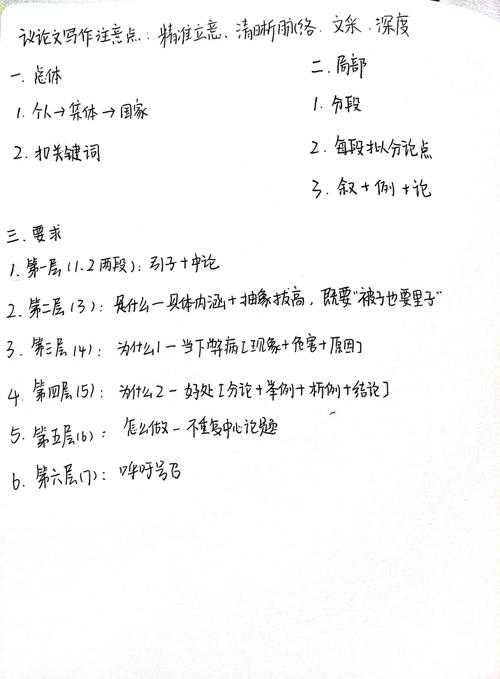 议论文写作注意点：精准立意、清晰脉络、文采、深度
一.总体
1.个人→集体→国家
2.扣关键词
二.局部
1.分段
2.每段拟分论点
3.叙+例+论
三.要求
1.第一层(1.2两段)：引子+中论
2.第二层(3)：是什么—具体内涵+抽象拔高，既要"被子也要里子"
3.第三层(4)：为什么1—当下弊病[现象+危害+原因]
4.第四层(5)：为什么2—好处[分论+举例+析例+结论]
5.第五层(6)：怎么做—不重复中心论题
6.第六层(7)：呼吁号召